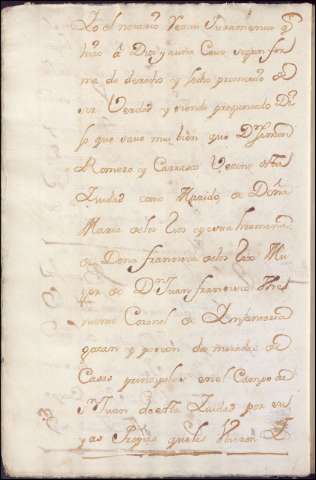 Yo el notario Recivi Juramento q̃
hizo à Dios y a una Cruz segun for
ma de derecho y fecho prometio de
decir Verdad y siendo preguntado Dixo
lo que save mui bien que Dn
Romero y Carrasco Vecino de esta
Ciudad como Marido de Doña
Maria de los Rios y como hermana
de Doña francisca de los Rios Mu
ger de Dn Juan francisco
Coronel de Infanteria
gozan y poseen dos moradas de
Casas prinsipales en el Campo de
Sn Juan de esta Ciudad por su
yas Propias queles